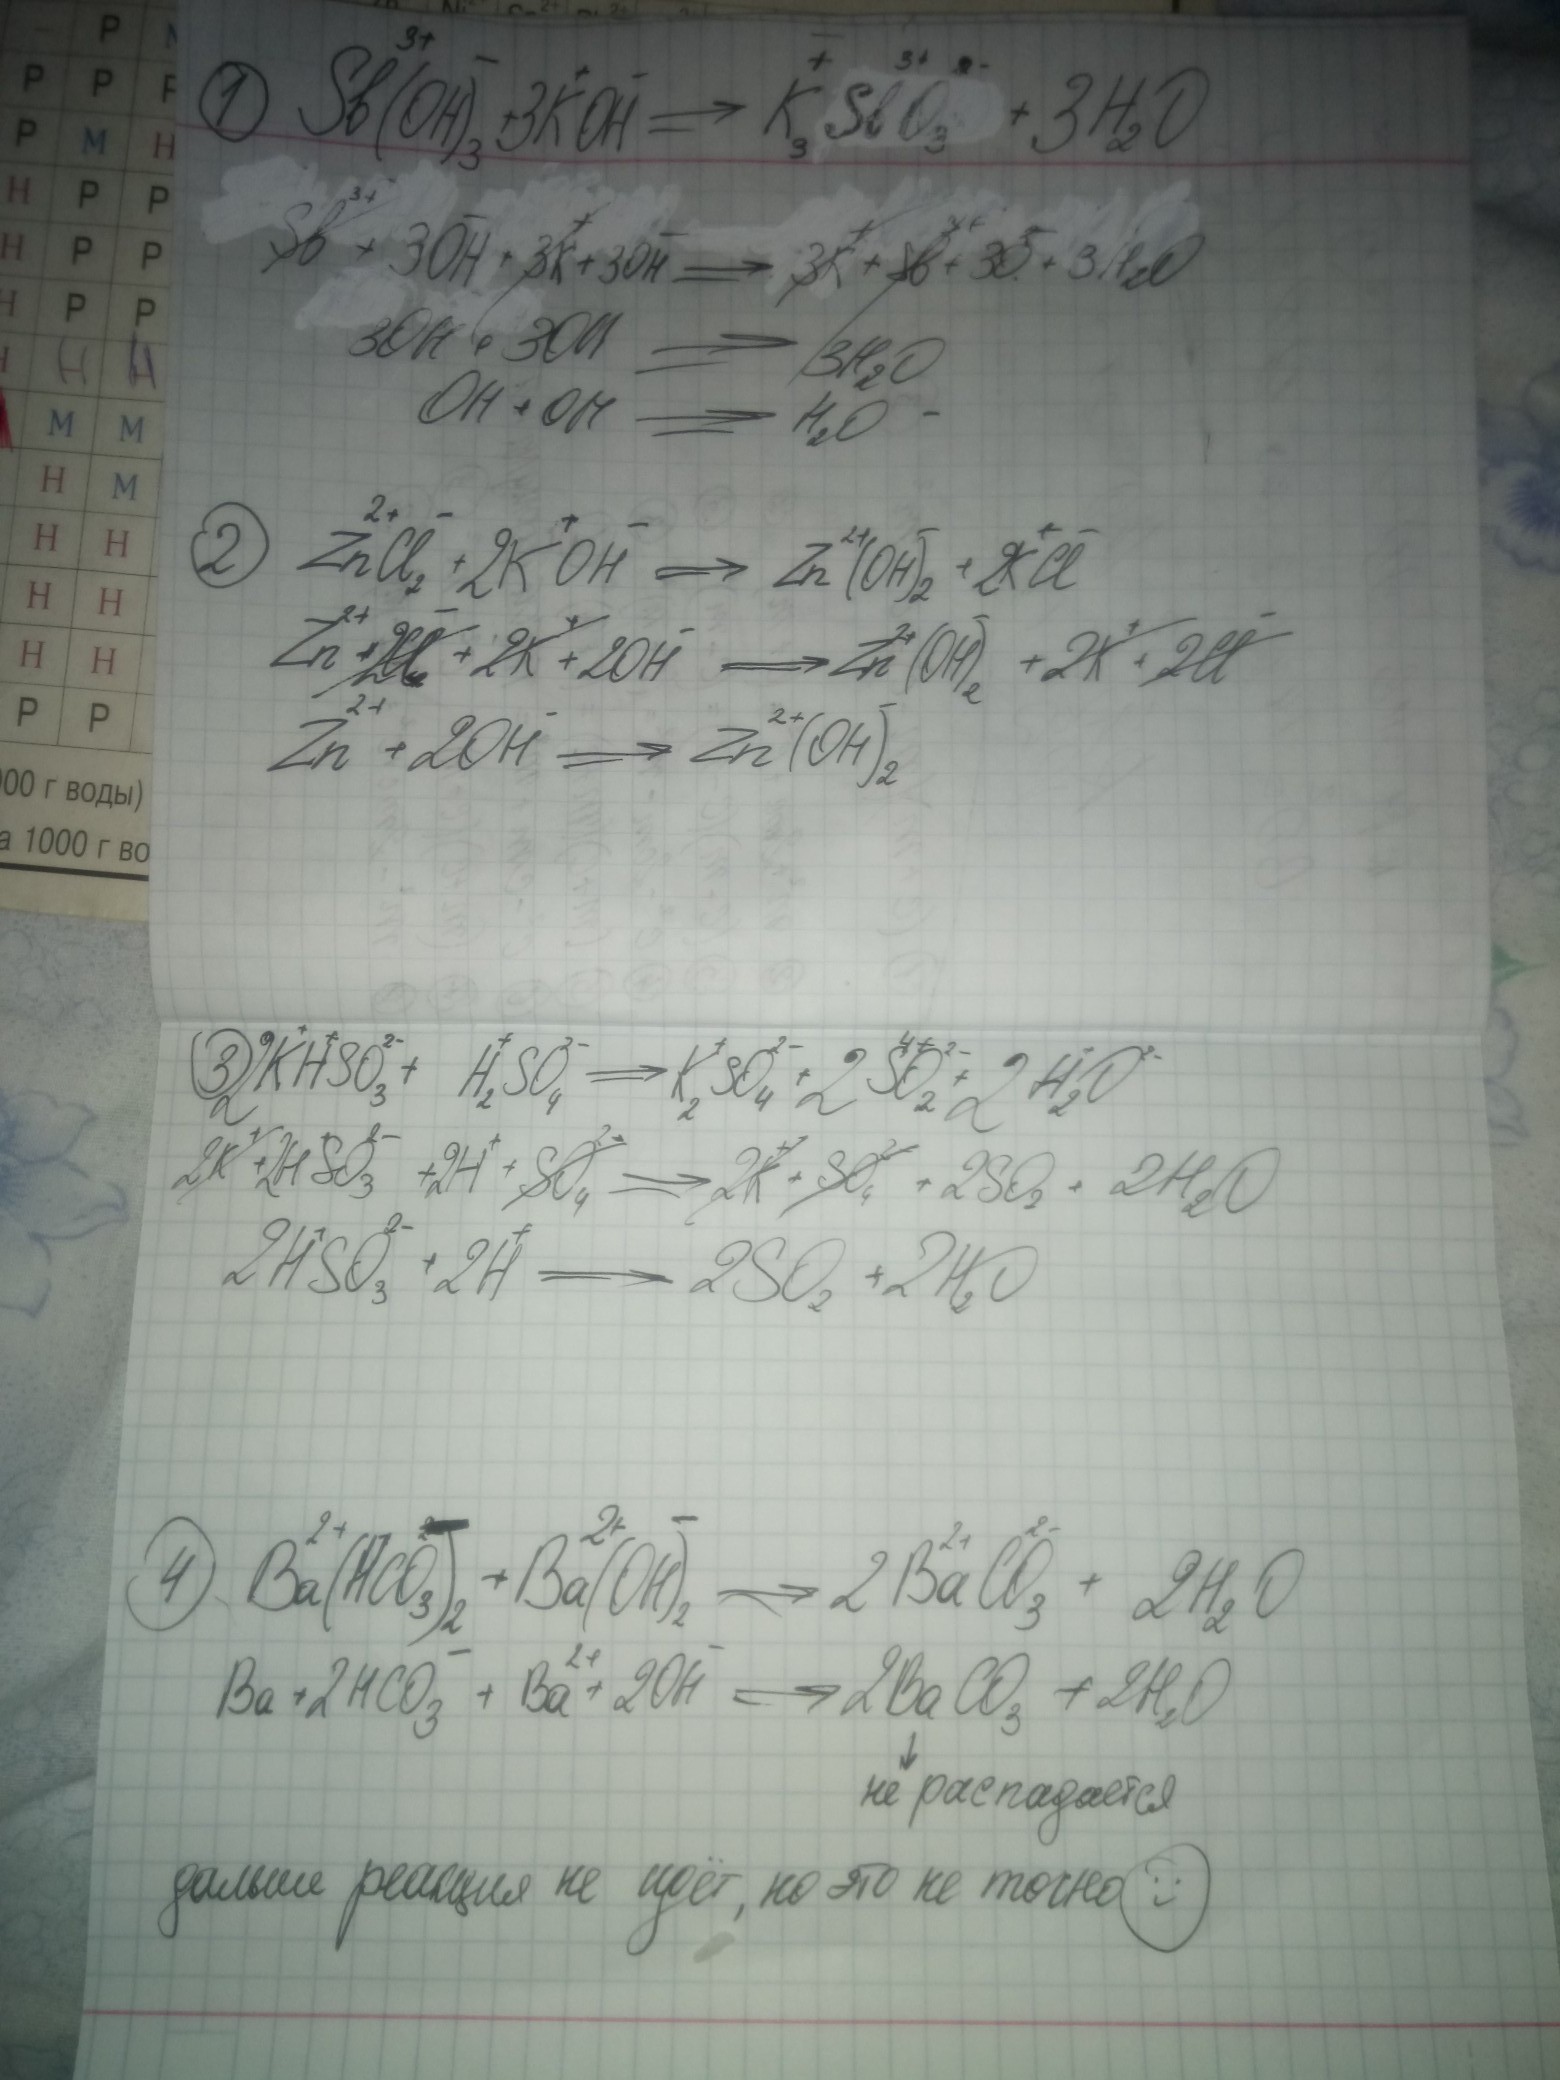 Р
Р Р
Р М Н
Н Р Р
Н Р Р
Н Р Р
Н Н Н
М М
Н М
Н Н
Н Н
Н Н
Р Р
000 г воды)
а 1000 г во
1 Sb³⁺(OH)⁻₃ + 3K⁺OH⁻ ⇒ K⁺₃Sb³⁺O²⁻₃ + 3H₂O
Sb³⁺ + 3OH⁻ + 3K⁺ + 3OH⁻ ⇒ 3K⁺ + Sb³⁺ + 3O⁻ + 3H₂O
3OH + 3OH ⇒ 3H₂O
OH + OH ⇒ H₂O -
2 Zn²⁺Cl⁻₂ + 2K⁺OH⁻ ⇒ Zn²⁺(OH)⁻₂ + 2K⁺Cl⁻
Zn²⁺ + 2Cl⁻ + 2K⁺ + 2OH⁻ ⇒ Zn²⁺(OH)⁻₂ + 2K⁺ + 2Cl⁻
Zn²⁺ + 2OH⁻ ⇒ Zn²⁺(OH)⁻₂
3 2K⁺H⁺SO₃²⁻ + H₂⁺SO₄²⁻ ⇒ K₂⁺SO₄²⁻ + 2S⁴⁺O₂²⁻ + 2H₂⁺O²⁻
2K⁺ + 2H⁺SO₃²⁻ + 2H⁺ + SO₄²⁻ ⇒ 2K⁺ + SO₄²⁻ + 2SO₂ + 2H₂O
2H⁺SO₃²⁻ + 2H⁺ ⇒ 2SO₂ + 2H₂O
4 Ba²⁺(HCO₃)⁻₂ + Ba²⁺(OH)⁻₂ ⇒ 2Ba²⁺CO₃²⁻ + 2H₂O
Ba + 2HCO₃⁻ + Ba²⁺ + 2OH⁻ ⇒ 2BaCO₃ + 2H₂O
↓
не распадается
дальше реакция не идёт, но это не точно